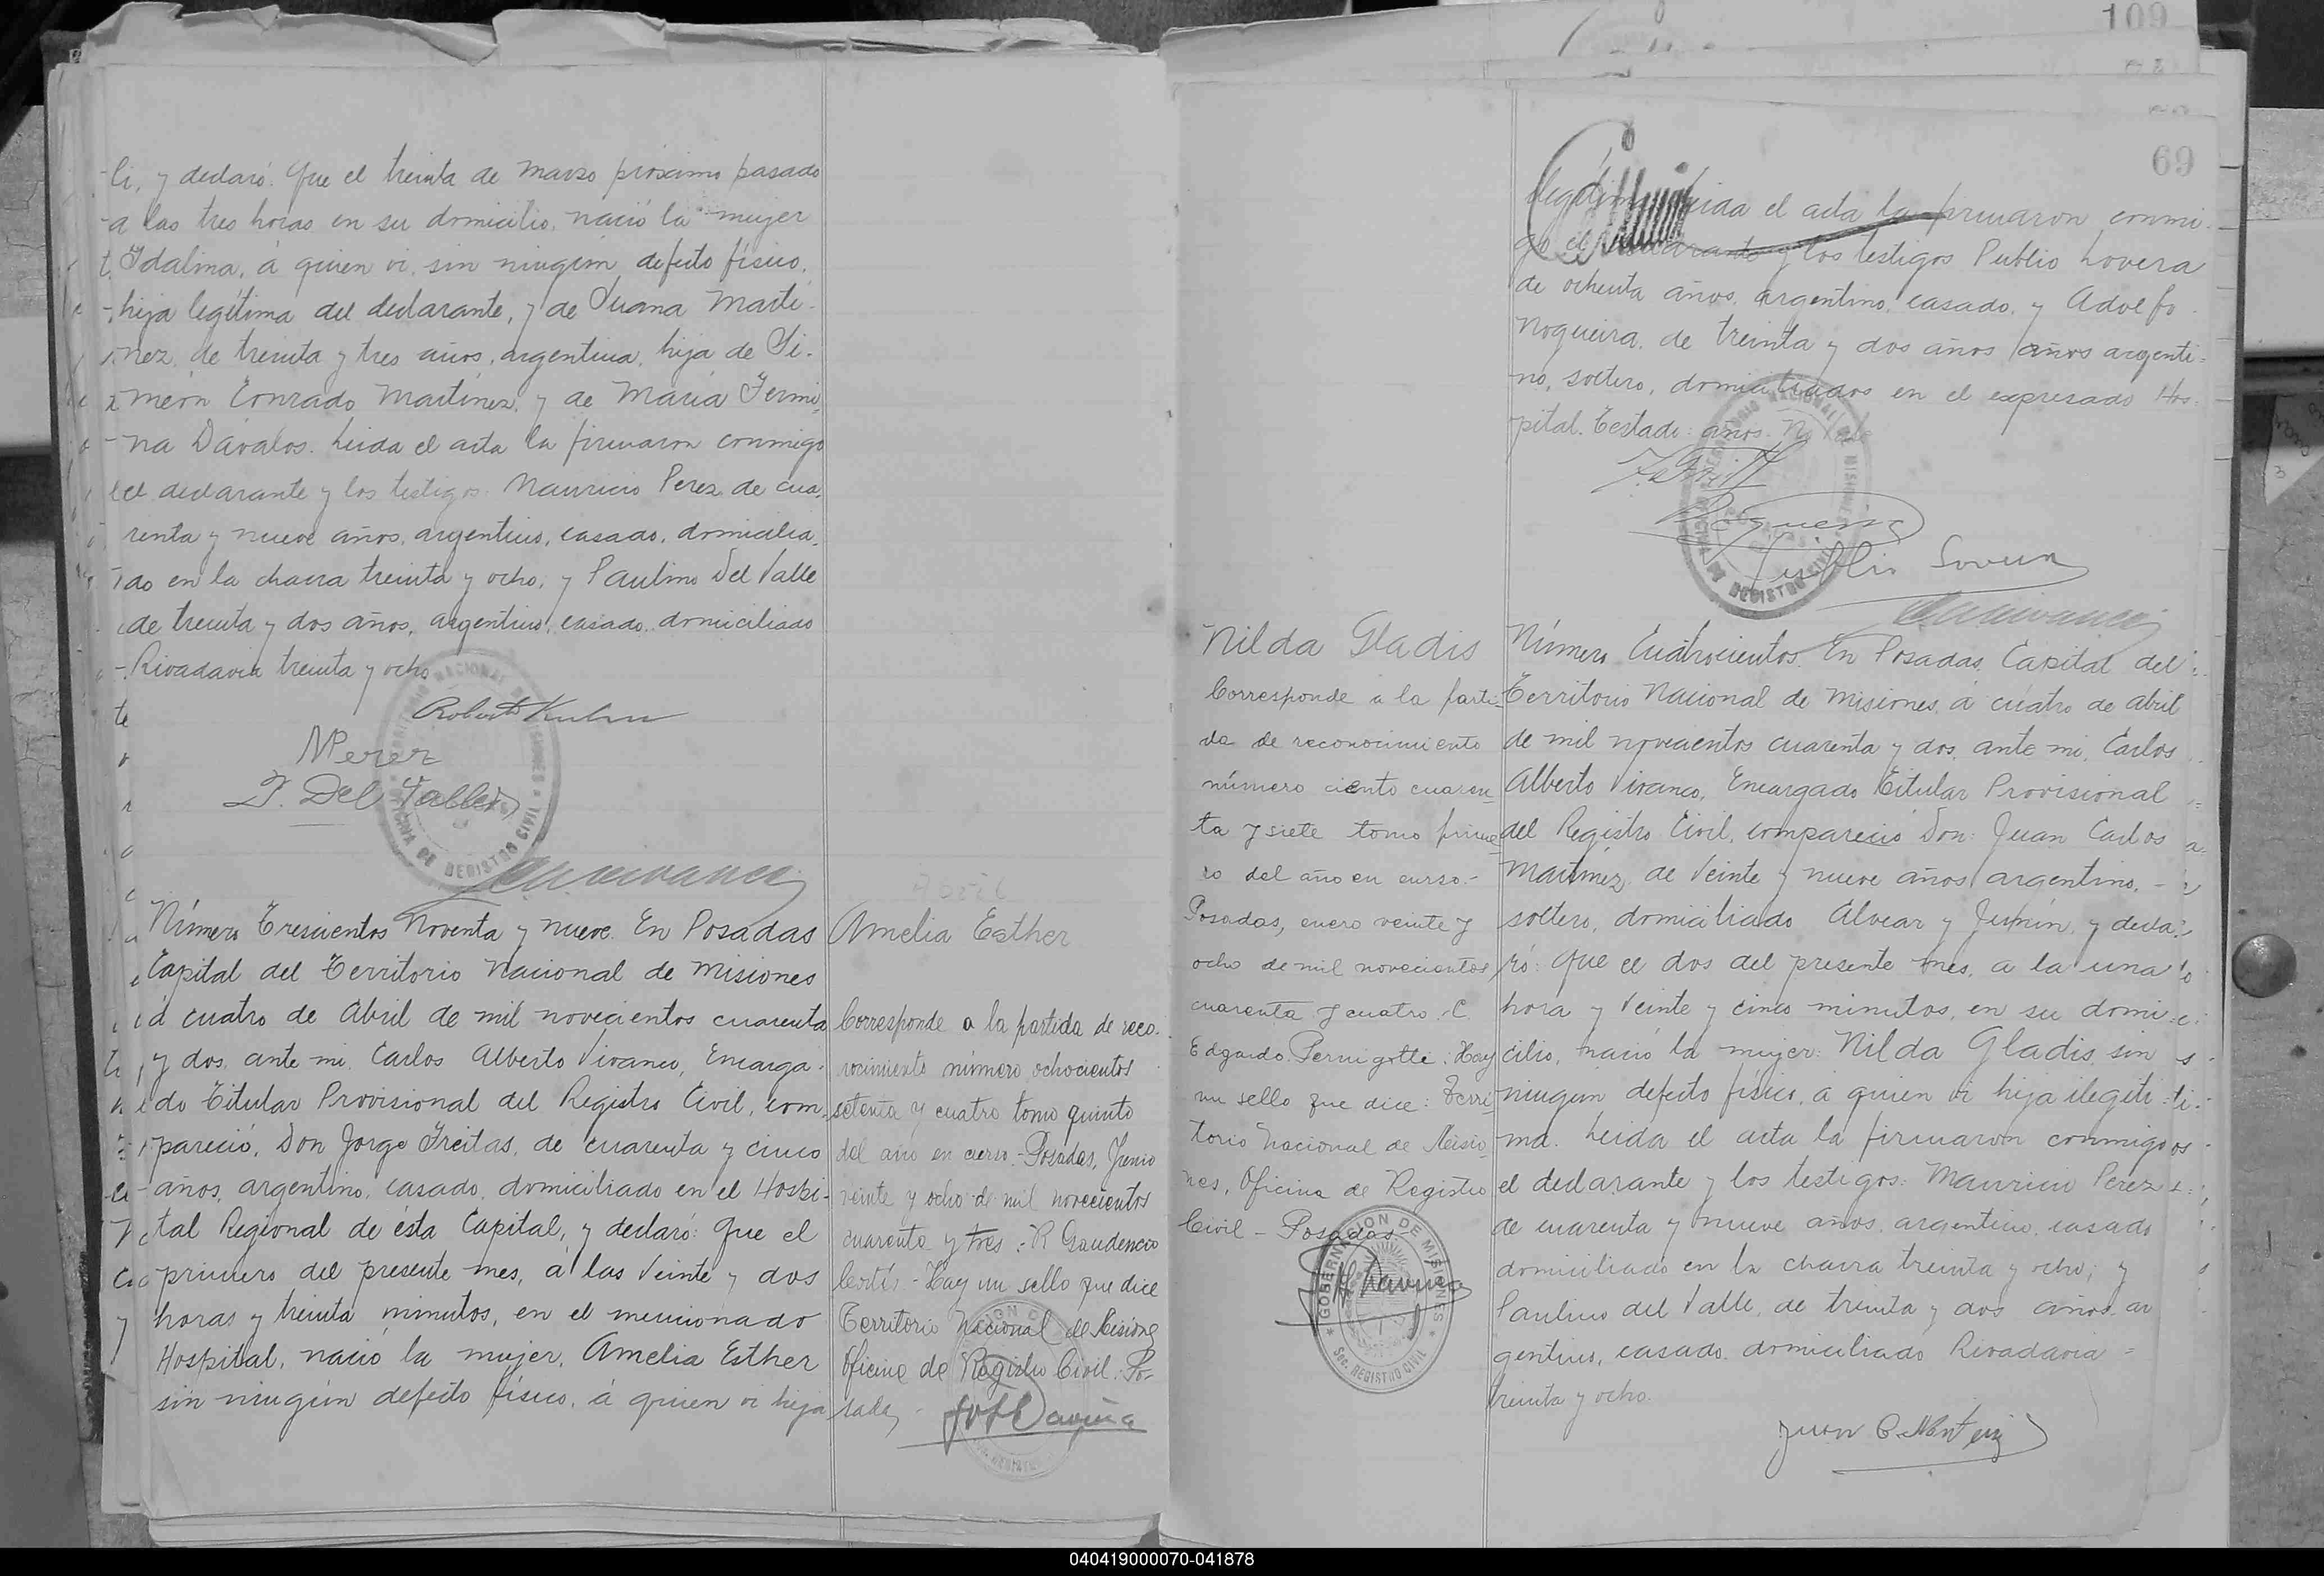 li, y declaró: Que el treinta de Marzo próximo pasado
a las tres horas en su domicilio, nació la mujer
Idalina, á quien vi, sin ningún defecto físico,
hija legítima del declarante, y de Juana Marti-
nez, de treinta y tres años, argentina, hija de Si-
meón Conrado Martínez, y de María Fermi-
na Dávalos. Leida el acta la firmaron conmigo
el declarante y los testigos: Mauricio Perez de cua-
renta y nueve años, argentino, casado, domicilia-
do en la chacra treinta y ocho, y Paulino Del Valle
de treinta y dos años, argentino, casado, domiciliado
Rivadavia treinta y ocho
Roberto Kuhn
MPerez
P. Del Valle
Número Trescientos Noventa y nueve. En Posadas
Capital del Territorio Nacional de Misiones
á cuatro de Abril de mil novecientos cuarenta
y dos, ante mi, Carlos Alberto Vivanco, Encarga-
do Titular Provisional del Registro Civil, com-
pareció, Don Jorge Freitas, de cuarenta y cinco
años, argentino, casado, domiciliado en el Hospi-
tal Regional de ésta Capital, y declaró: Que el
primero del presente mes, á las Veinte y dos
horas y treinta minutos, en el mencionado
Hospital, nació la mujer, Amelia Esther
sin ningún defecto físico, á quien vi hija
Abril
Amelia Esther
Corresponde a la partida de reco-
nocimiento número ochocientos
setenta y cuatro tomo quinto
del año en curso.- Posadas, Junio
veinte y ocho de mil novecientos
cuarenta y tres.- R Gaudencio
Cortés - Hay un sello que dice
Territorio Nacional de Misiones
Oficina de Registro Civil. Po-
sadas
109
69
Leida el acta la firmaron conmi-
go el declarante y los testigos Publio Lovera
de ochenta años, argentino, casado, y Adolfo
Nogueira, de treinta y dos años años argenti-
no, soltero, domiciliados en el expresado Hos-
pital. Testado: años.
Publio Lovera
Nilda Gladis
Corresponde a la parti-
da de reconocimiento
número ciento cuaren-
ta y siete tomo prime-
ro del año en curso.-
Posadas, enero veinte y
ocho de mil novecientos
cuarenta y cuatro. C.
Edgardo Pernigotti. Hay
un sello que dice: Terri-
torio Nacional de Misio-
nes, Oficina de Registro
Civil - Posadas
GOBERNACION DE MISIONES
Sec. REGISTRO CIVIL
Número Cuatrocientos. En Posadas, Capital del
Territorio Nacional de Misiones, á cuatro de Abril
de mil novecientos cuarenta y dos, ante mi, Carlos
Alberto Vivanco, Encargado Titular Provisional
del Registro Civil, compareció Don: Juan Carlos
Martínez, de Veinte y nueve años, argentino,
soltero, domiciliado Alvear y Junín, y decla-
ró: Que el dos del presente mes, a la una
hora y Veinte y cinco minutos, en su domi-
cilio, nació la mujer: Nilda Gladis, sin
ningún defecto físico, a quien vi hija ilegíti-
ma. Leida el acta la firmaron conmigo
el declarante y los testigos: Mauricio Perez
de cuarenta y nueve años, argentino, casado
domiciliado en la chacra treinta y ocho; y
Paulino del Valle, de treinta y dos años, ar
gentino, casado, domiciliado Rivadavia
treinta y ocho.
Juan C. Martínez
040419000070-041878